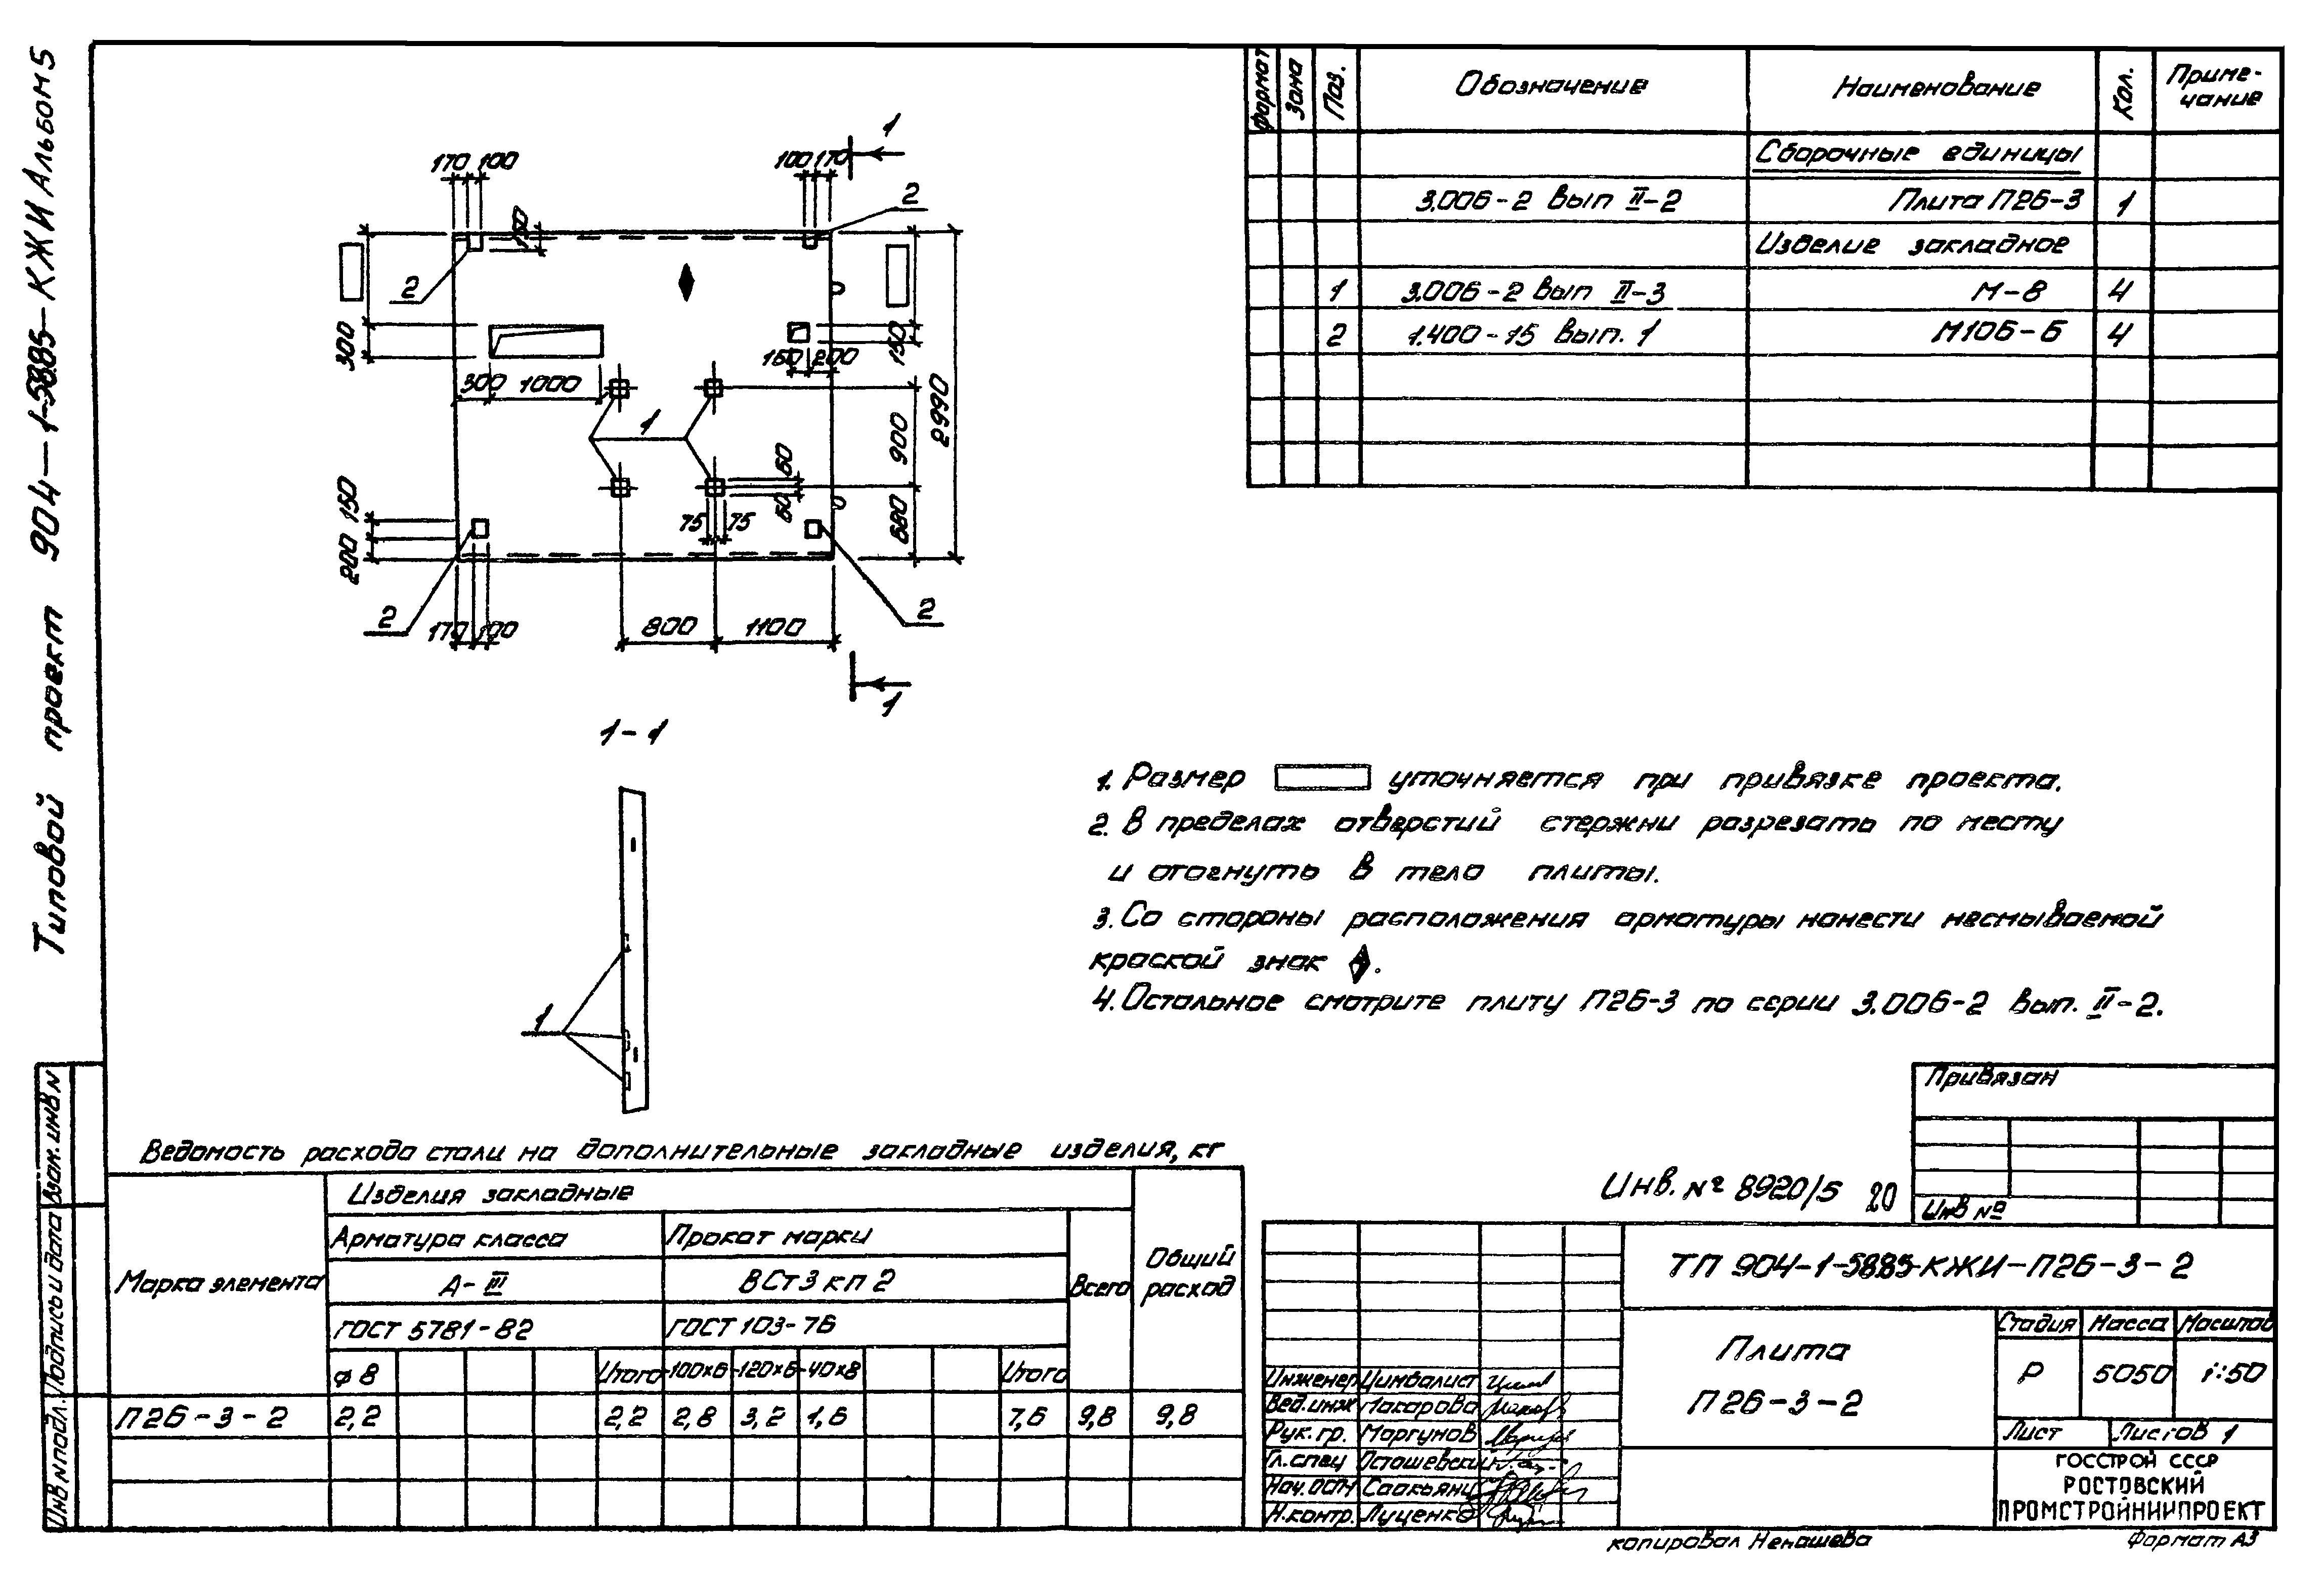 Типовой проект 904-1-58.85-КЖИ Альбом 5
формат
Зона
Поз.
Обозначение
Наименование
Кол.
Приме-
чание
Сборочные единицы
3.006-2 Вып II-2 Плита П26-3 1
Изделие закладное
1 3.006-2 Вып II-3 М-8 4
2 1.400-15 Вып. 1 М106-6 4
1
170 100
100 170
2
150
2
300
150
150 200
300 1000
1
900
2990
60
60
75 75
680
150
200
2
2
170 100
800
1100
1
1-1
1
1. Размер уточняется при привязке проекта.
2. В пределах отверстий стержни разрезать по месту
и отогнуть в тело плиты.
3. Со стороны расположения арматуры нанести несмываемой
краской знак .
4. Остальное смотрите плиту П26-3 по серии 3.006-2 Вып. II-2.
Ведомость расхода стали на дополнительные закладные изделия, кг
Марка элемента
Изделия закладные
Арматура класса
Прокат марки
А-III
ВСт3кп2
ГОСТ 5781-82
ГОСТ 103-76
Всего
Общий
расход
ф8 Итого -100х6 -120х6 -40х8 Итого
П26-3-2 2,2 2,2 2,8 3,2 1,6 7,6 9,8 9,8
Привязан
Инв №
Инв. № 8920/5 20
ТП 904-1-58.85-КЖИ-П26-3-2
Плита
П26-3-2
Стадия Масса Масштаб
Р 5050 1:50
Лист Листов 1
Инженер Цимбалист
Вед.инж Макарова
Рук.гр. Моргунов
Гл.спец Осташевский
Нач.ОСП Саакьянц
Н.контр. Луценко
ГОССТРОЙ СССР
РОСТОВСКИЙ
ПРОМСТРОЙНИИПРОЕКТ
Взам. инв N
Подпись и дата
Инв N подл.
копировал Ненашева
Формат А3